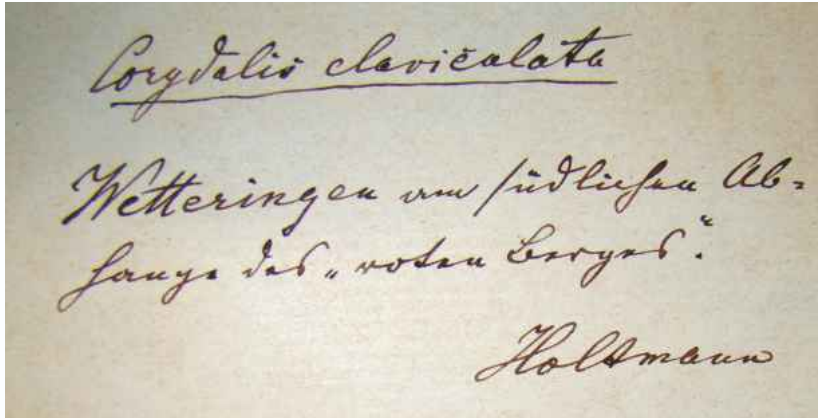 Corydalis claviculata
Wetteringen am südlichen Ab=
hange des „roten Berges“.
Holtmann